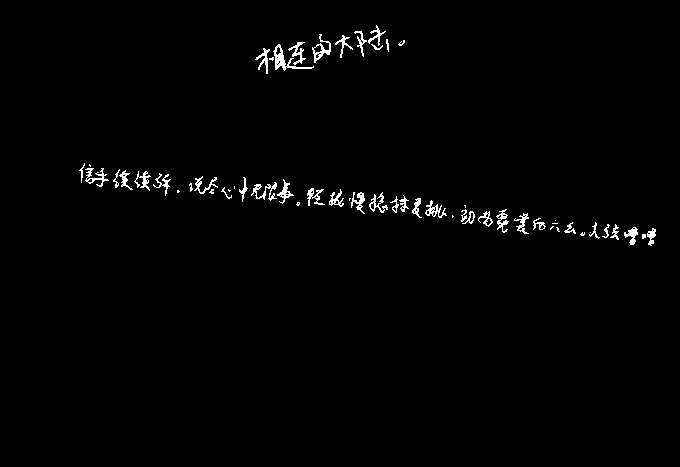 相连的大陆。
信手续续弹，说尽心中无限事。轻拢慢捻抹复挑，初为霓裳后六幺。大弦嘈嘈